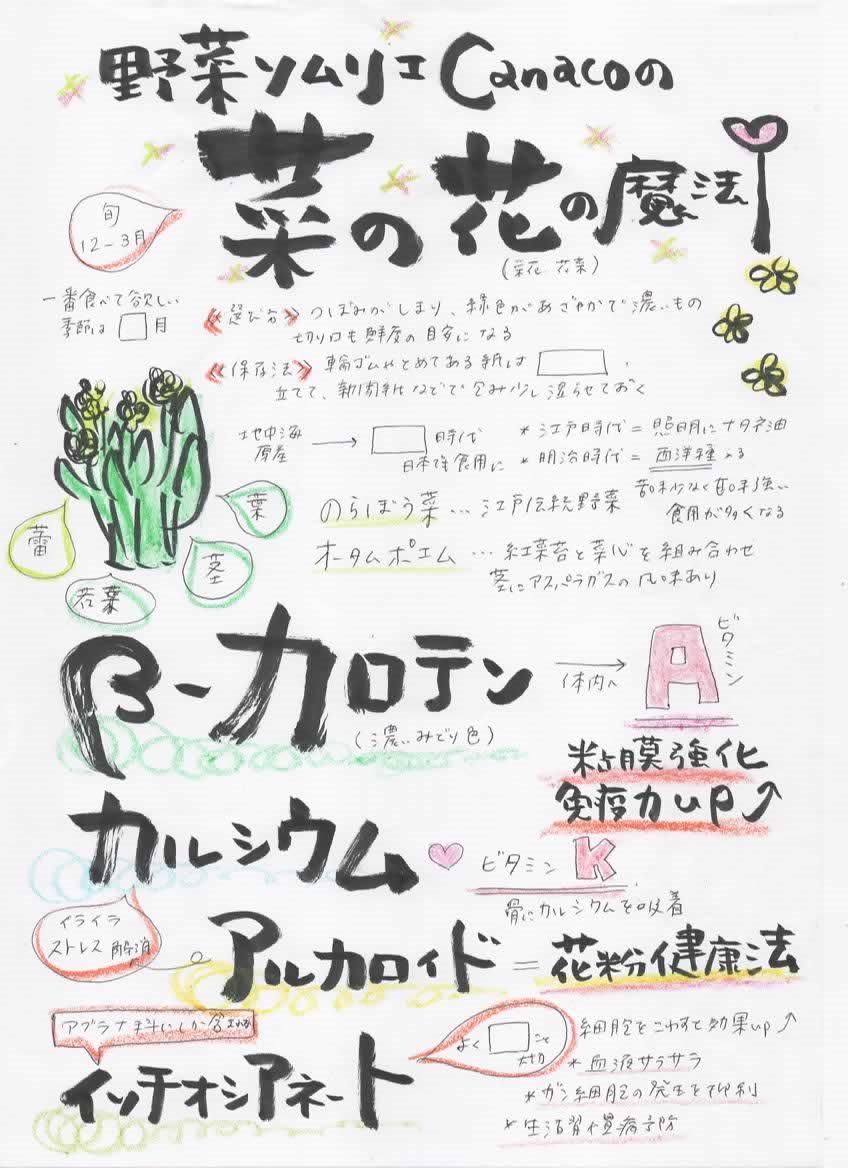 野菜ソムリエCanacoの
菜の花の魔法
(菜花 花菜)
旬
12-3月
一番食べて欲しい
季節は□月
《選び方》つぼみがしまり、緑色があざやかで濃いもの
切り口も鮮度の目安になる
《保存法》輪ゴムやとめてある紙は□、
立てて、新聞紙などで包み少し湿らせておく
地中海
原産
→□時代
日本で食用に
*江戸時代=照明にナタネ油
*明治時代=西洋種入る
苦味少なく甘味強い
食用が多くなる
のらぼう菜…江戸伝統野菜
オータムポエム…紅菜苔と菜心を組み合わせ
茎にアスパラガスの風味あり
蕾
葉
茎
若葉
β-カロテン
(濃いみどり色)
→
体内へ
ビタミン
A
粘膜強化
免疫力up↗
カルシウム♡ビタミンK
骨にカルシウムを吸着
イライラ
ストレス解消
アルカロイド=花粉健康法
アブラナ科にしか含まれぬ
イソチオシアネート
よく□こと
大切
細胞をこわすと効果up↗
*血液サラサラ
*ガン細胞の発生を抑制
*生活習慣病予防